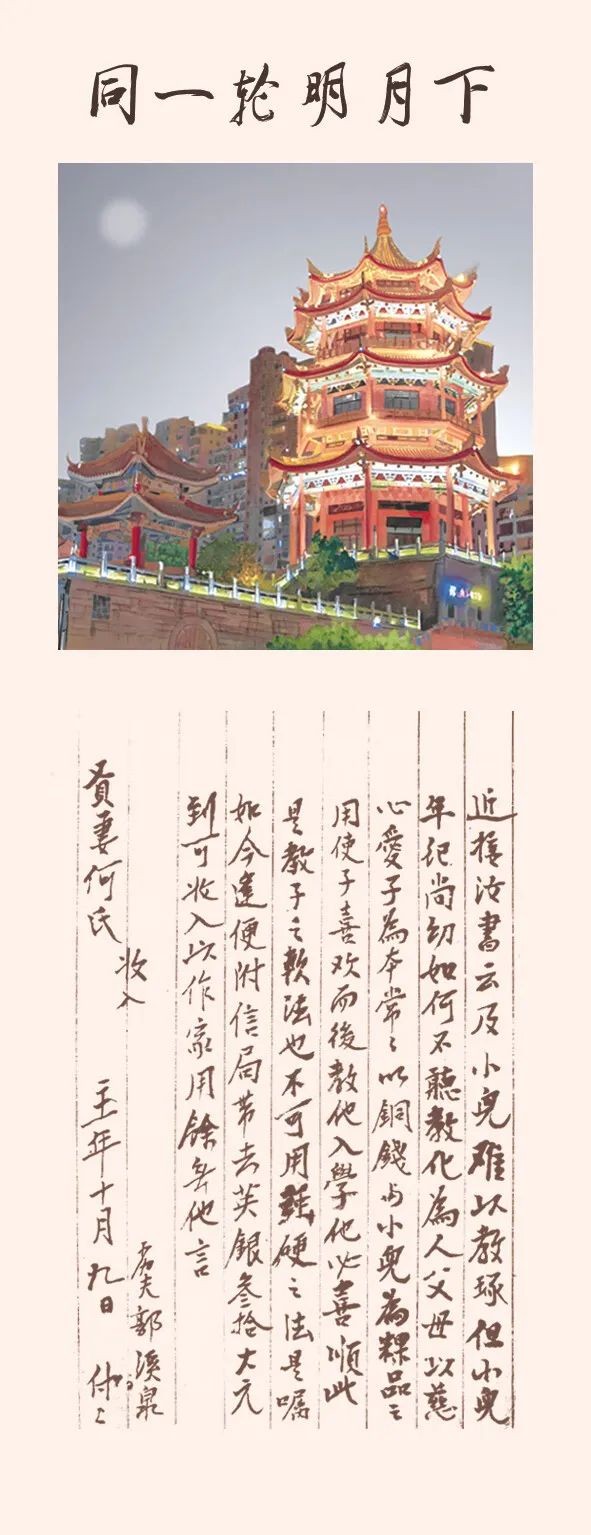 同一轮明月下
近接汝書云及小兒难以教琢但小兒
年纪尚幼如何不聽教化為人父母以慈
心愛子為本常々以銅錢与小兒為粿品之
用使子喜欢而後教他入學他必喜順此
是教子之軟法也不可用强硬之法是嘱
如今逢便附信局带去英銀叁拾大元
到可收入以作家用餘无他言
愚夫郭溪泉
收入
賢妻何氏
年十月九日